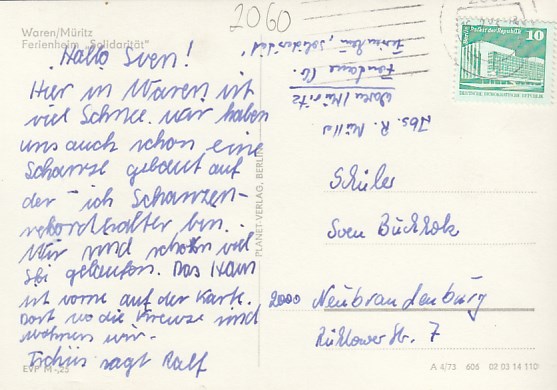 2060
Waren/Müritz
Ferienheim „Solidarität"
Hallo Sven!
Hier in Waren ist
viel Schnee. Wir haben
uns auch schon eine
Schanze gebaut auf
der ich Schanzen-
rekordhalter bin.
Wir sind schon viel
Ski gelaufen. Das Haus
ist vorne auf der Karte.
Dort wo die Kreuze sind
wohnen wir.
Tschüs sagt Ralf
EVP M -,25
PLANET-VERLAG, BERLIN
Abs. R. Müller
Waren/Müritz
Ferienheim „Solidarität"
10
Schüler
Sven Buchholz
2000 Neubrandenburg
Str. 7
A 4/73 606 02 03 14 110